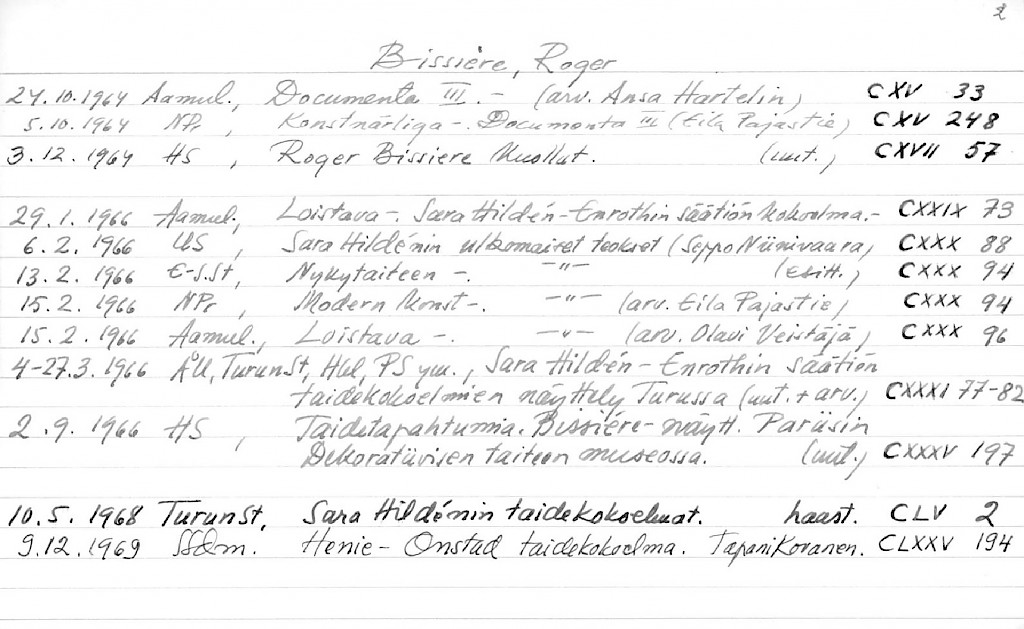 2
Bissière, Roger
24.10.1964 Aamul., Documenta III. - (arv. Ansa Hartelin) CXV 33
5.10.1964 NPr, Konstnärliga -. Documenta III (Eila Pajastie) CXV 248
3.12.1964 HS, Roger Bissiere kuollut. (uut.) CXVII 57
29.1.1966 Aamul., Loistava -. Sara Hildén-Enrothin säätiön kokoelma.- CXXIX 73
6.2.1966 US, Sara Hildénin ulkomaiset teokset (Seppo Niinivaara) CXXX 88
13.2.1966 E-S.St, Nykytaiteen -. -"- (esitt.) CXXX 94
15.2.1966 NPr, Modern konst -. -"- (arv. Eila Pajastie) CXXX 94
15.2.1966 Aamul., Loistava -. -"- (arv. Olavi Veistäjä) CXXX 96
4-27.3.1966 ÅU, TurunSt, Hbl, PS ym., Sara Hildén-Enrothin säätiön
taidekokoelmien näyttely Turussa (uut. + arv.) CXXXI 77-82
2.9.1966 HS, Taidetapahtumia. Bissiére-näytt. Pariisin
Dekoratiivisen taiteen museossa. (uut.) CXXXV 197
10.5.1968 TurunSt, Sara Hildénin taidekokoelmat. haast. CLV 2
9.12.1969 SSdm. Henie-Onstad taidekokoelma. Tapani Kovanen. CLXXV 194